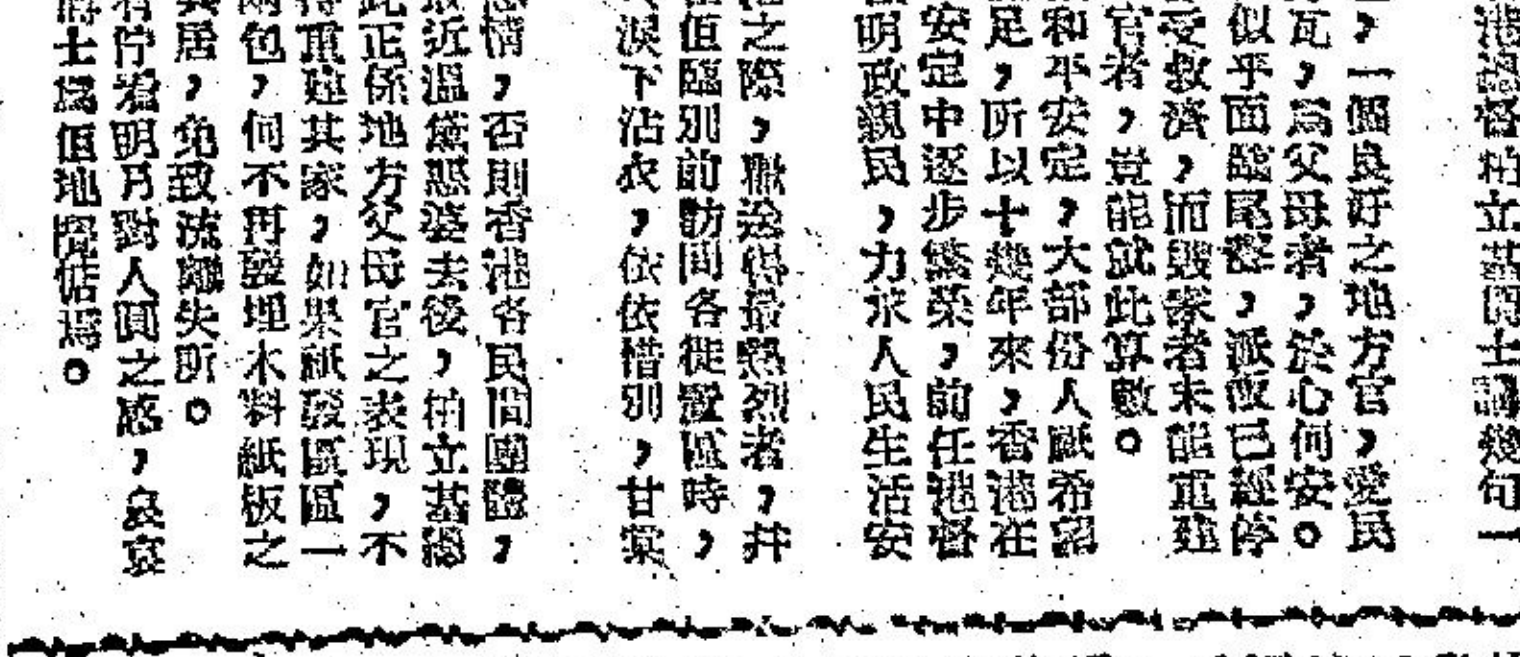 港總督柏立基爵士講幾句一
，一個良好之地方官，愛民
瓦，為父母者，於心何安。
似乎面臨尾聲，派飯已經停
受救濟，而毀家者未能重建
官者，豈能就此算數。
和平安定，大部份人祇希望
足，所以十幾年來，香港在
安定中逐步繁榮，前任港督
明政親民，力求人民生活安
之際，歡送得最熱烈者，并
但臨別前訪問各徙置區時，
淚下沾衣，依依惜別，甘棠
情，否則香港各民間團體，
最近溫黛惡婆去後，柏立基總
此正係地方父母官之表現，不
得重建其家，如果祇發區區一
兩包，何不再發埋木料紙板之
其居，免致流離失所。
有佇看明月對人圓之感，哀哀
爵士為但地關怙焉。